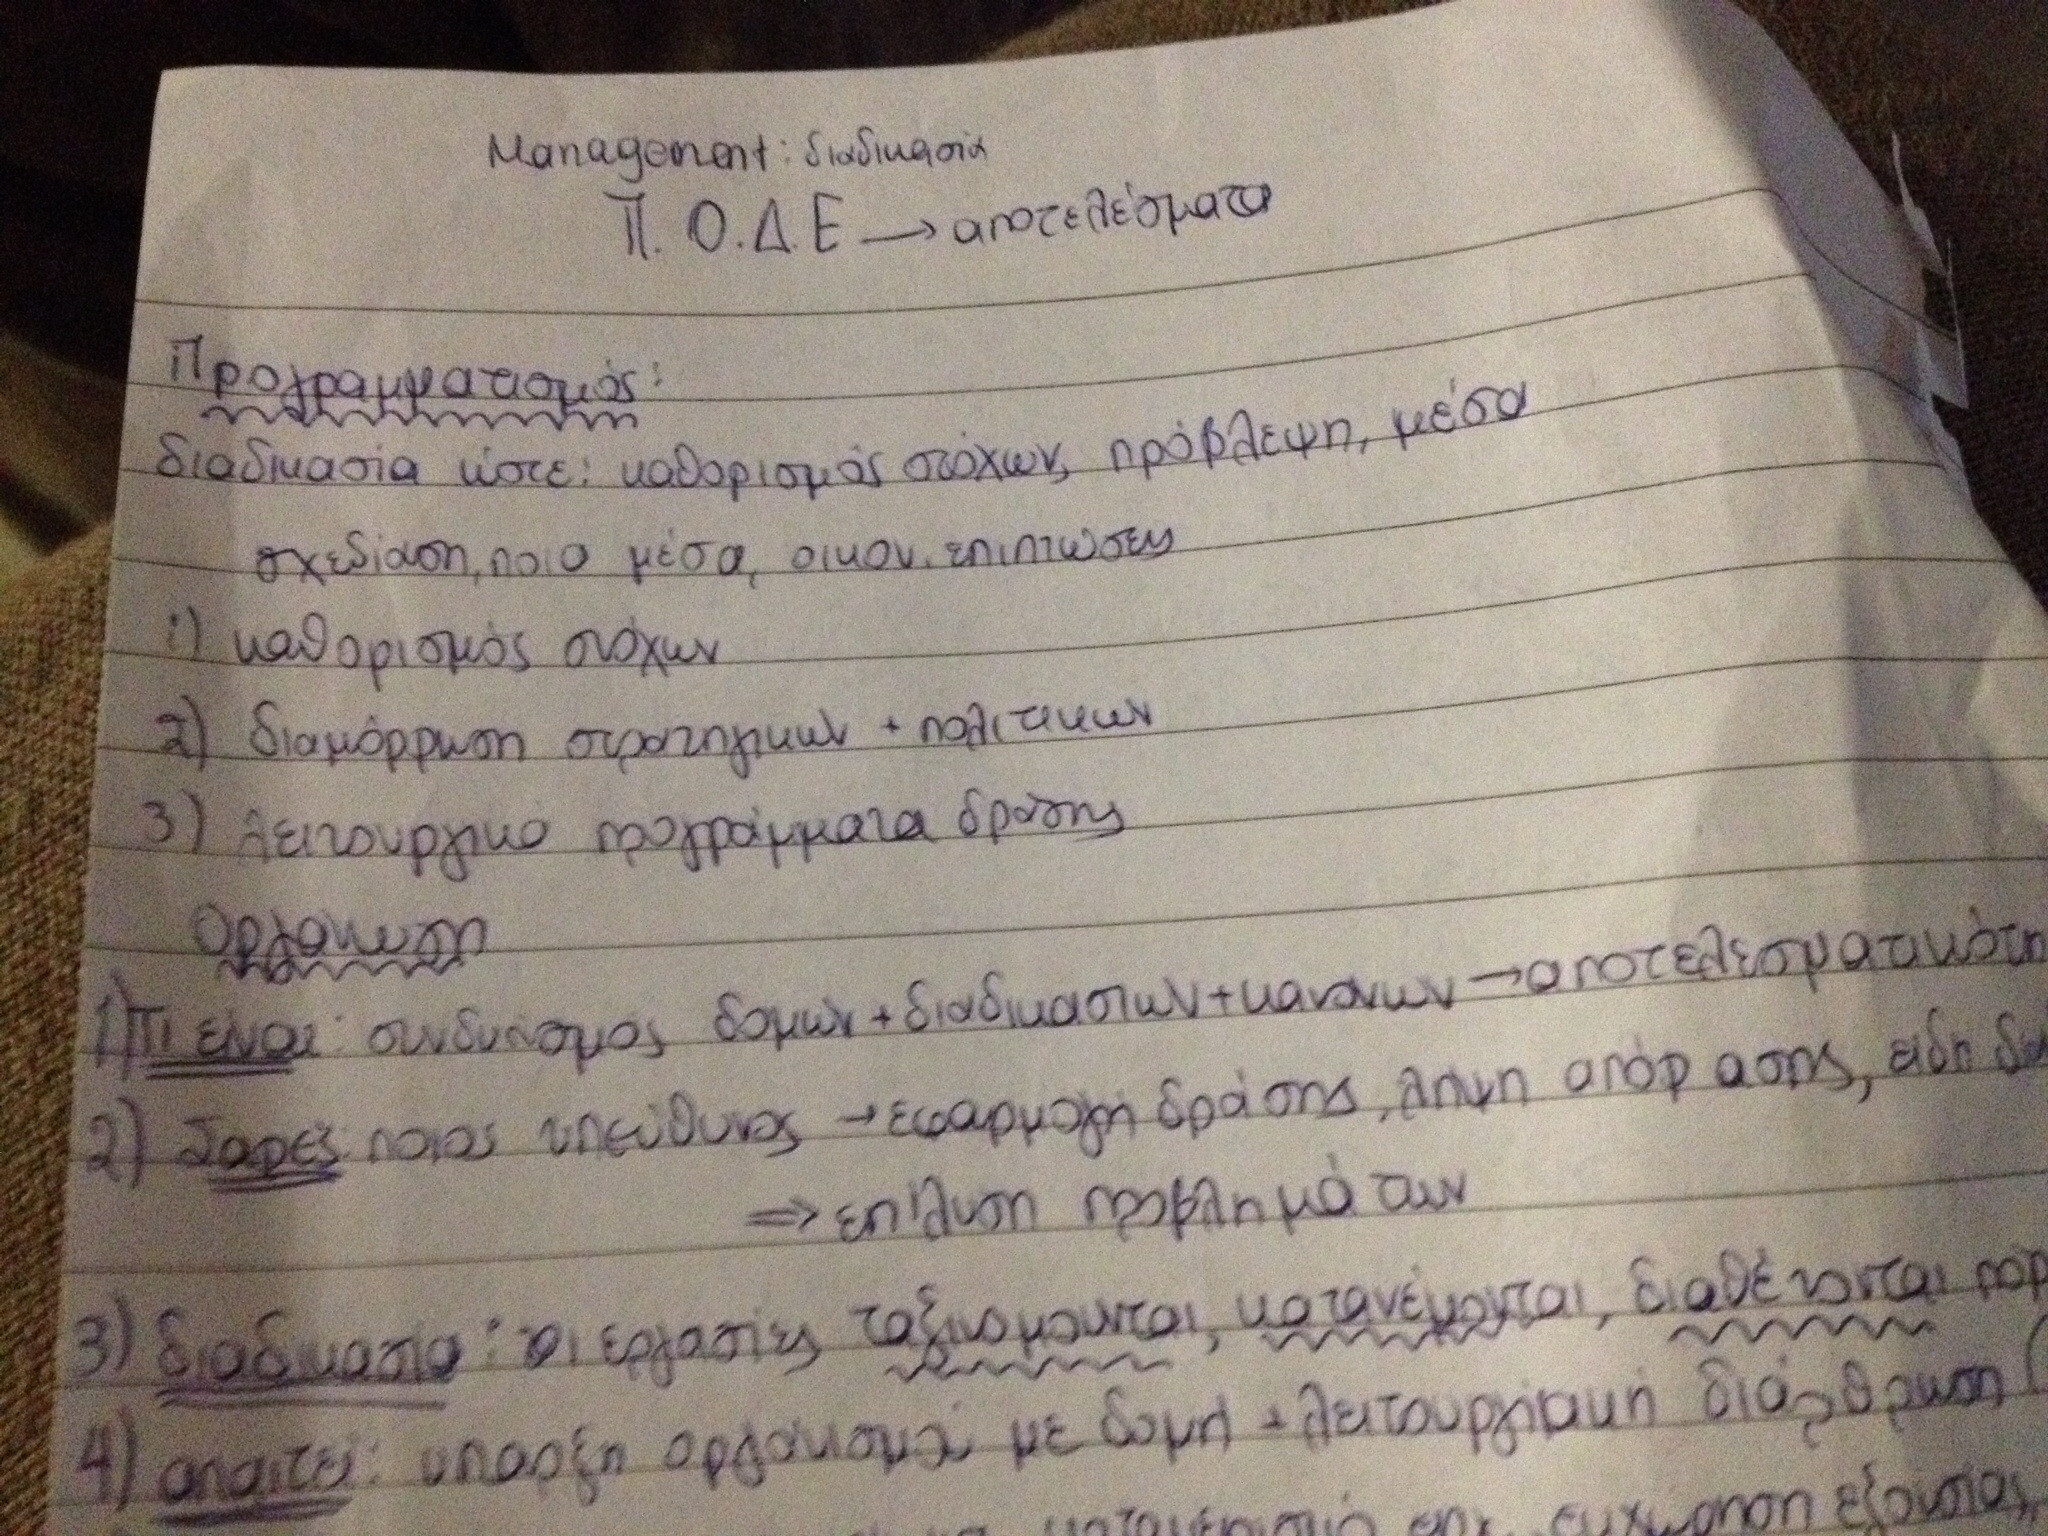 Management: διαδικασία
Π. Ο.Δ.Ε → αποτελέσματα
Προγραμματισμός:
διαδικασία ώστε: καθορισμός στόχων, πρόβλεψη, μέσα
σχεδίαση, ποια μέσα, οικον. επιπτώσεις
1) καθορισμός στόχων
2) διαμόρφωση στρατηγικών + πολιτικών
3) λειτουργικά προγράμματα δράσης
Οργάνωση
1) Τι είναι: συνδυασμός δομών + διαδικασιών + κανόνων → αποτελεσματικότη
2) Σαφές ποιος υπεύθυνος → εφαρμογή δράσης, λήψη απόφασης, είδη δια
⇒ επίλυση προβλημάτων
3) διαδικασία: οι εργασίες ταξινομούνται, κατανέμονται, διαθέτονται πόρ
4) απαιτεί: υπαρξη οργανισμού με δομή + λειτουργική διάρθρωση (
εξουσίας,